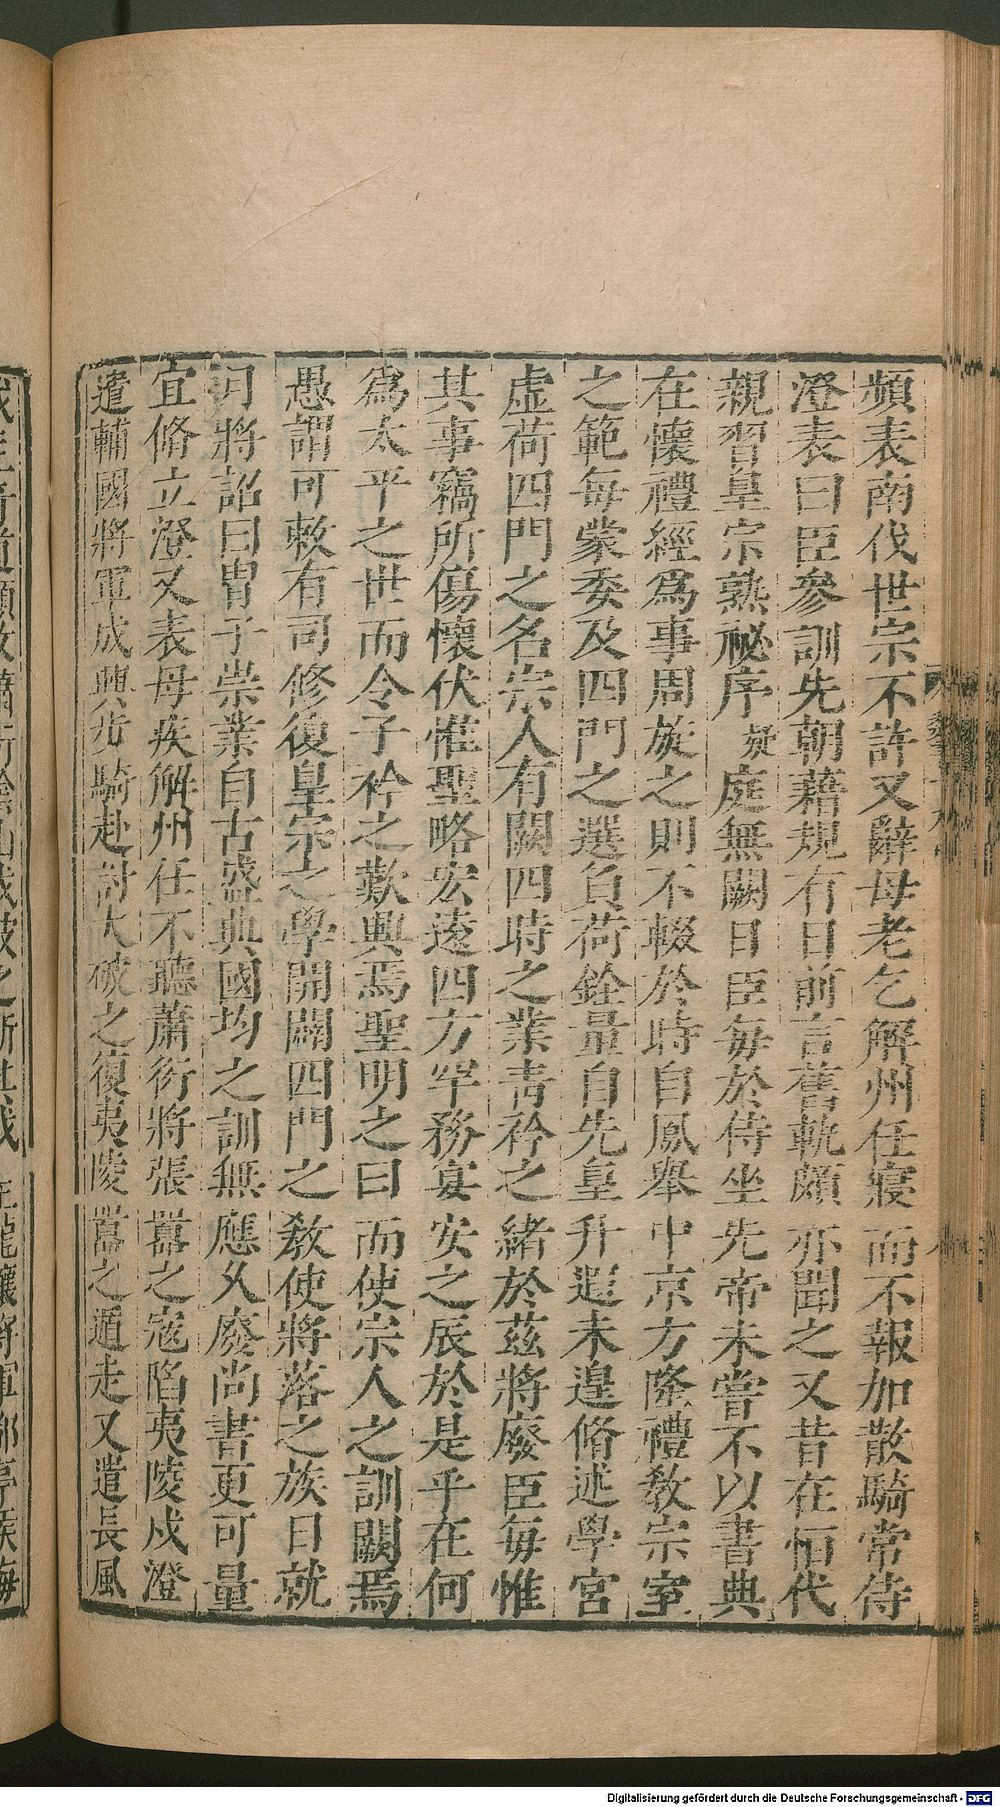 頻表南伐世宗不許又辭母老乞解州任寢而不報加散騎常侍
澄表曰臣參訓先朝藉規有日前言舊軌頗亦聞之又昔在恒代
親習皇宗熟祕序疑庭無闕日臣每於侍坐先帝未嘗不以書典
在懷禮經爲事周旋之則不輟於時自鳳舉中京方隆禮教宗室
之範每蒙委及四門之選負荷銓量自先皇升遐未遑脩述學宮
虛荷四門之名宗人有闕四時之業青衿之緒於茲將廢臣每惟
其事竊所傷懷伏惟聖略宏遠四方罕務宴安之辰於是乎在何
爲太平之世而令子衿之歎興焉聖明之日而使宗人之訓闕焉
愚謂可敕有司修復皇宗之學開闢四門之教使將落之族日就
月將詔曰胄子崇業自古盛典國均之訓無應久廢尚書更可量
宜脩立澄又表母疾解州任不聽蕭衍將張囂之寇陷夷陵戍澄
遣輔國將軍成興步騎赴討大破之復夷陵囂之遁走又遣長風
Digitalisierung gefördert durch die Deutsche Forschungsgemeinschaft - DFG